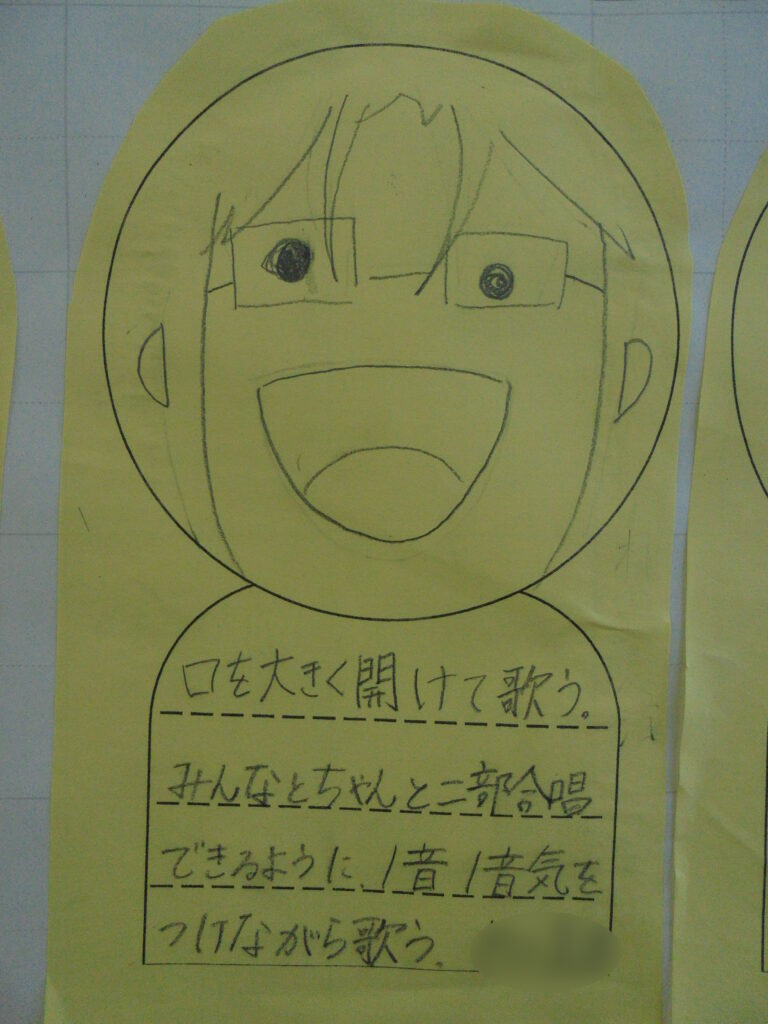 口を大きく開けて歌う。
みんなとちゃんと二部合唱
できるように、1音1音気を
つけながら歌う。